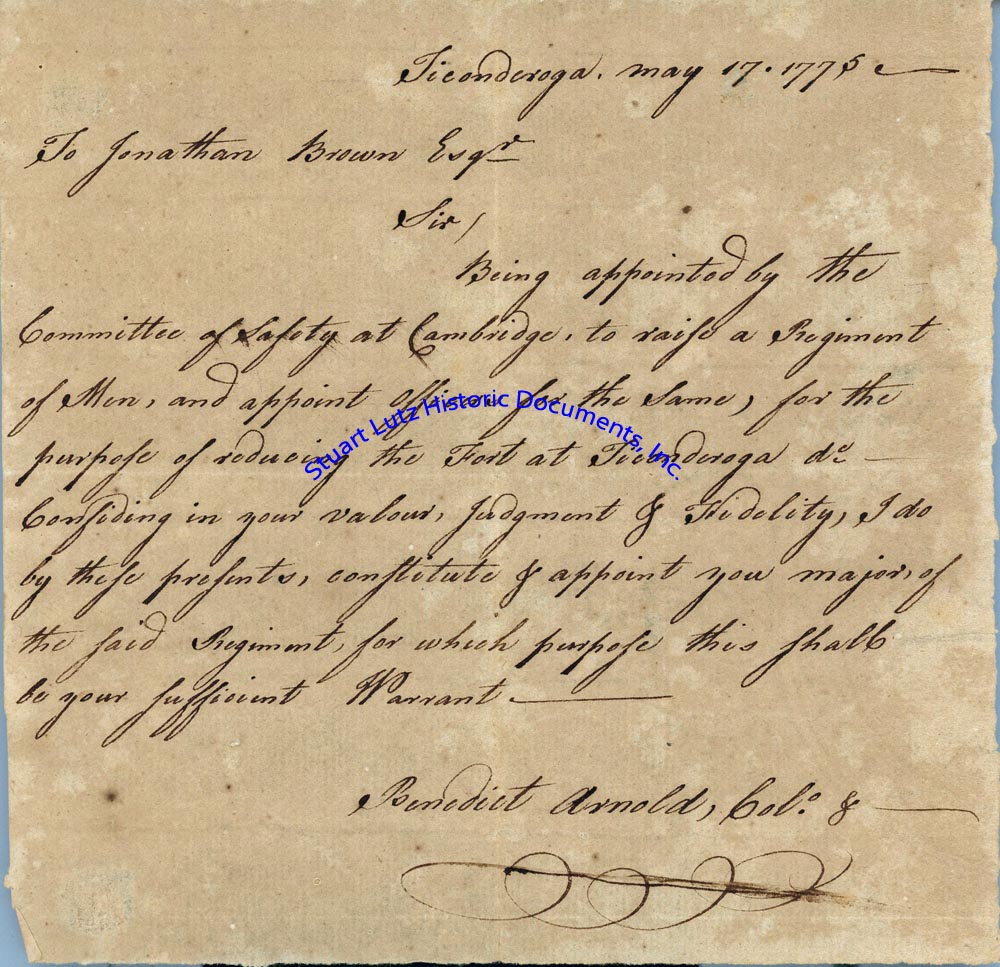 Ticonderoga. may 17. 1775
To Jonathan Brown Esqr
Sir,
Being appointed by the
Committee of Safety at Cambridge, to raise a Regiment
of Men, and appoint officers for the Same, for the
purpose of reducing the Fort at Ticonderoga do. —
Confiding in your valour, Judgment & Fidelity, I do
by these presents, constitute & appoint you major, of
the said Regiment, for which purpose this shall
be your sufficient Warrant —
Benedict Arnold, Colo. & —
Stuart Lutz Historic Documents, Inc.